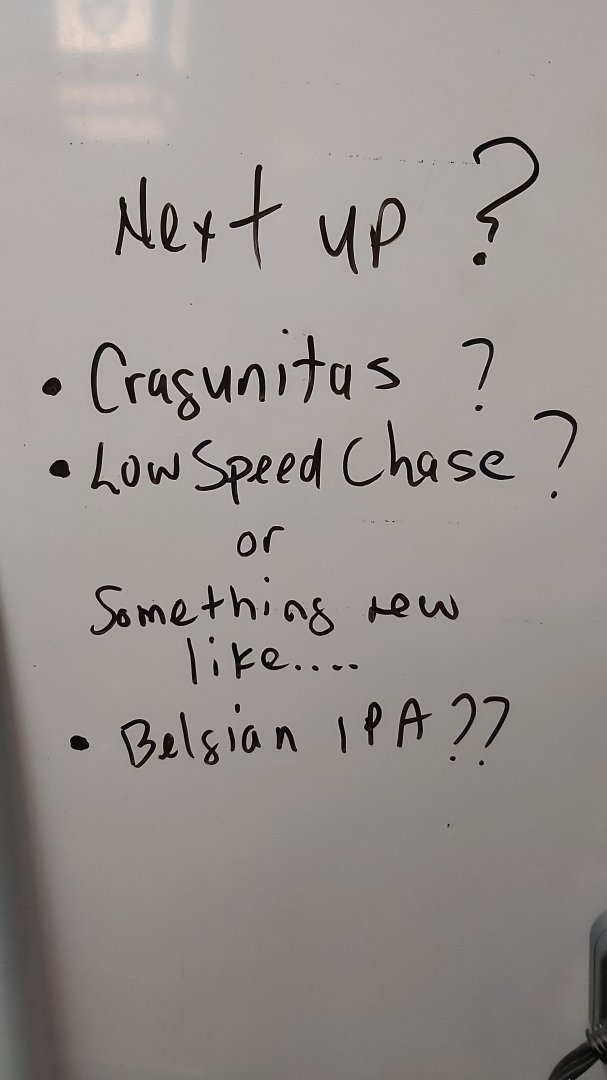 Next up ?
• Cragunitas ?
• Low Speed Chase ?
or
Something new
like....
• Belgian IPA ??